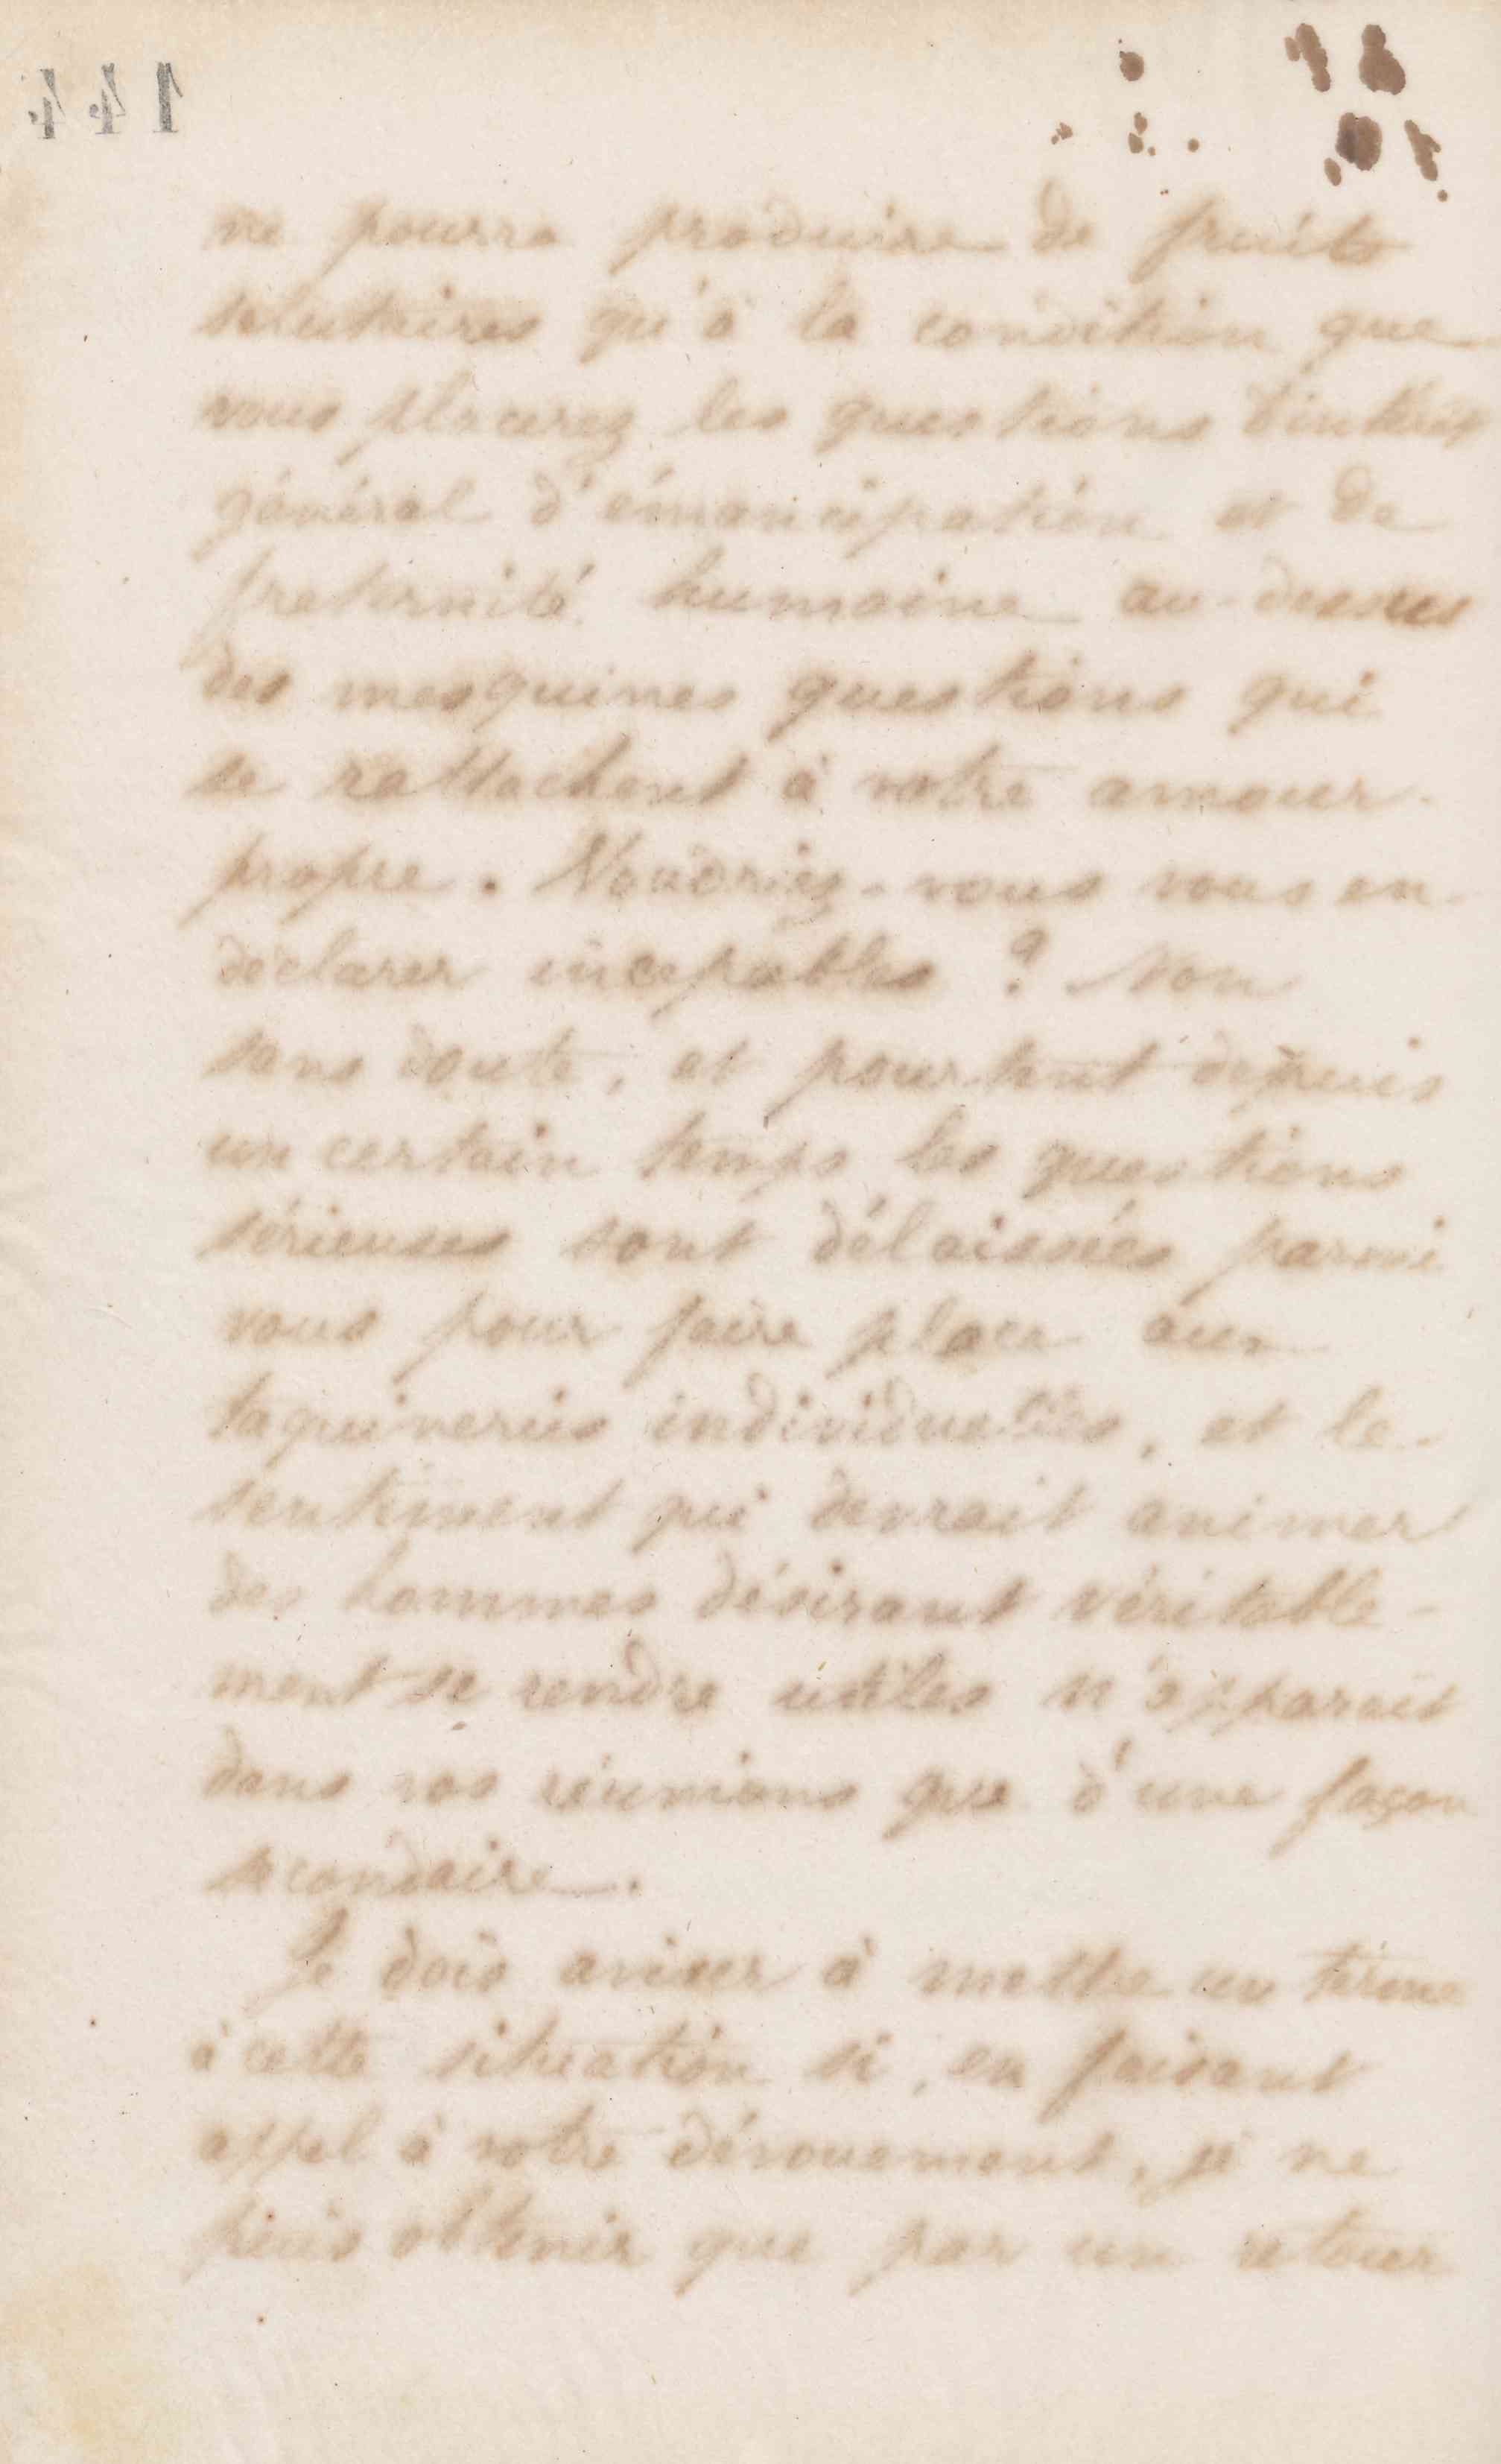 144
ne pourra produire de fruits
salutaires qu'à la condition que
vous placerez les questions d'intérêt
général d'émancipation et de
fraternité humaine au-dessus
des mesquines questions qui
se rattachent à votre amour-
propre. Voudriez-vous vous en
déclarer incapables ? Non
sans doute, et pourtant depuis
un certain temps les questions
sérieuses sont délaissées parmi
vous pour faire place aux
taquineries individuelles, et le
sentiment qui devrait animer
des hommes désirant véritable-
ment se rendre utiles n'apparait
dans vos réunions que d'une façon
secondaire.
Je dois aviser à mettre un terme
à cette situation si, en faisant
appel à votre dévouement, je ne
puis obtenir que par un retour